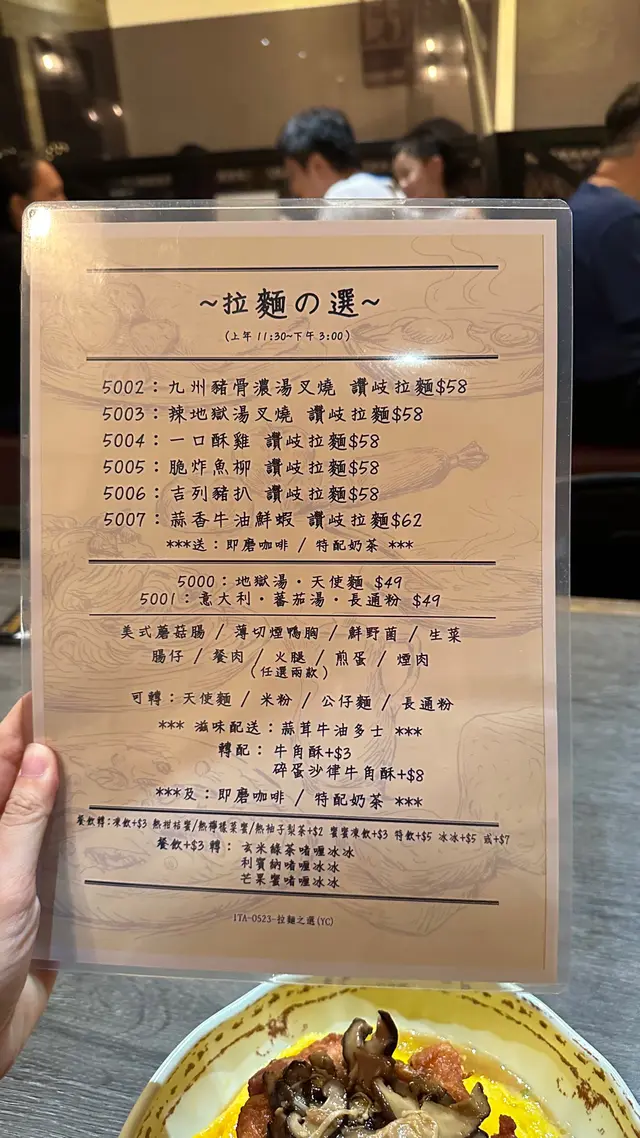 ~拉麵の選~
(上午 11:30~下午 3:00)
5002：九州豬骨濃湯叉燒 讚岐拉麵$58
5003：辣地獄湯叉燒 讚岐拉麵$58
5004：一口酥雞 讚岐拉麵$58
5005：脆炸魚柳 讚岐拉麵$58
5006：吉列豬扒 讚岐拉麵$58
5007：蒜香牛油鮮蝦 讚岐拉麵$62
***送：即磨咖啡 / 特配奶茶 ***
5000：地獄湯・天使麵 $49
5001：意大利・蕃茄湯・長通粉 $49
美式蘑菇腸 / 薄切煙鴨胸 / 鮮野菌 / 生菜
腸仔 / 餐肉 / 火腿 / 煎蛋 / 煙肉
(任選兩款)
可轉：天使麵 / 米粉 / 公仔麵 / 長通粉
*** 滋味配送：蒜茸牛油多士 ***
轉配： 牛角酥+$3
碎蛋沙律牛角酥+$8
***及：即磨咖啡 / 特配奶茶 ***
餐飲轉:凍飲+$3 熱柑桔蜜/熱檸檬菜蜜/熱柚子梨茶+$2 蜜蜜凍飲+$3 特飲+$5 冰冰+$5 或+$7
餐飲+$3 轉： 玄米綠茶啫喱冰冰
利賓納啫喱冰冰
芒果蜜啫喱冰冰
ITA-0523-拉麵之選(YC)